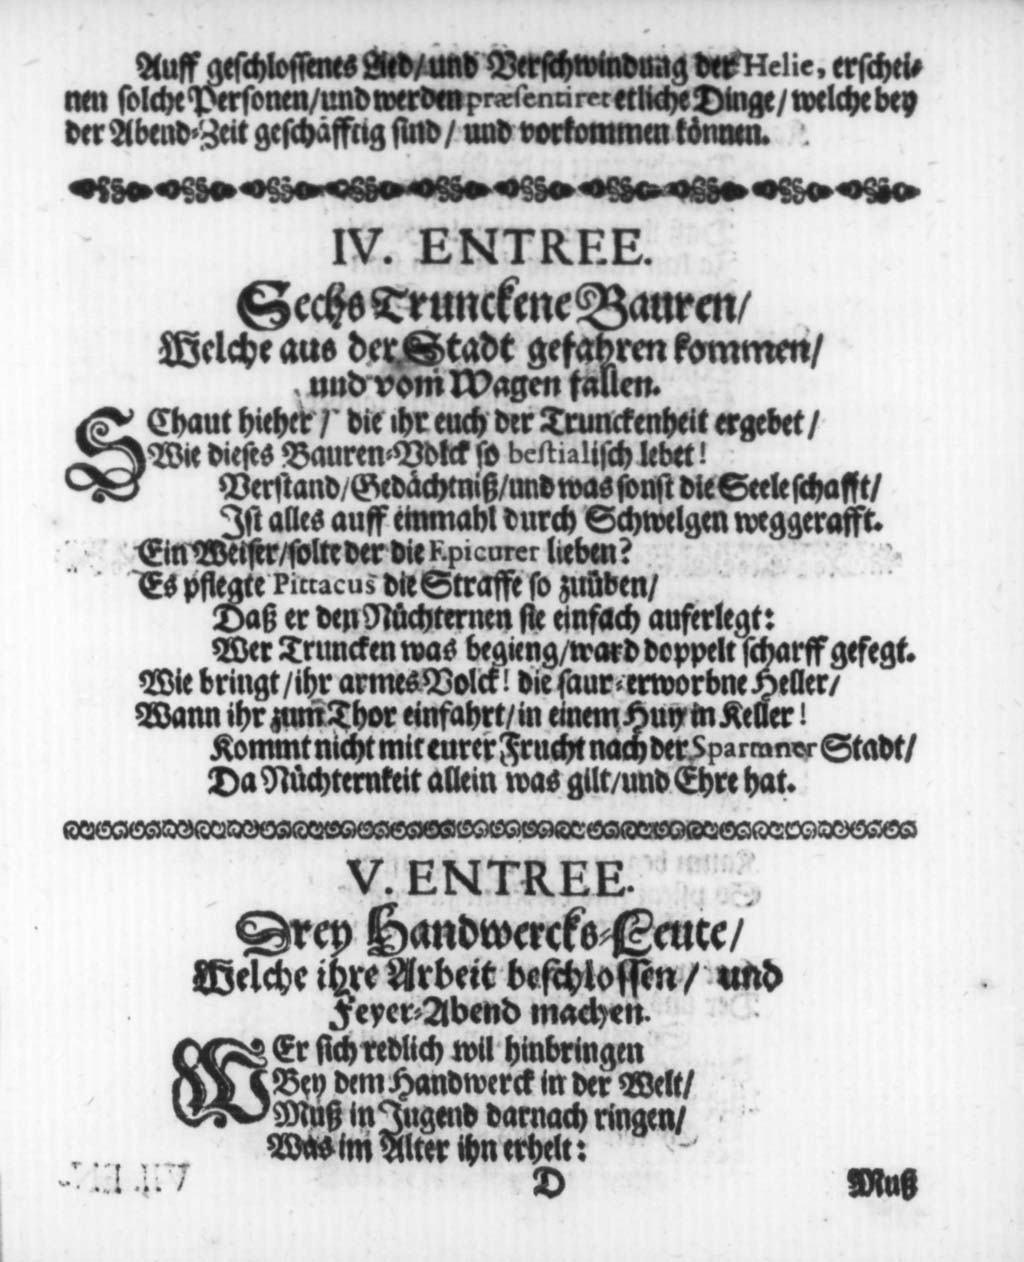 Auff geschlossenes Lied/ und Verschwindung der Helie, erschei-
nen solche Personen/ und werden præsentiret etliche Dinge/ welche bey
der Abend-Zeit geschäfftig sind/ und vorkommen können.
IV. ENTREE.
Sechs Trunckene Bauren/
Welche aus der Stadt gefahren kommen/
und vom Wagen fallen.
SChaut hieher/ die ihr euch der Trunckenheit ergebet/
Wie dieses Bauren-Volck so bestialisch lebet!
Verstand/ Gedächtniß/ und was sonst die Seele schafft/
Ist alles auff einmahl durch Schwelgen weggerafft.
Ein Weiser/ solte der die Epicurer lieben?
Es pflegte Pittacus die Straffe so zuüben/
Daß er den Nüchternen sie einfach auferlegt:
Wer Truncken was begieng/ ward doppelt scharff gefegt.
Wie bringt/ ihr armes Volck! die saur-erworbne Heller/
Wann ihr zum Thor einfahrt/ in einem Huy in Keller!
Kommt nicht mit eurer Frucht nach der Spartaner Stadt/
Da Nüchternkeit allein was gilt/ und Ehre hat.
V. ENTREE.
Drey Handwercks-Leute/
Welche ihre Arbeit beschlossen/ und
Feyer-Abend machen.
WEr sich redlich wil hinbringen
Bey dem Handwerck in der Welt/
Muß in Jugend darnach ringen/
Was im Alter ihn erhelt:
D Muß